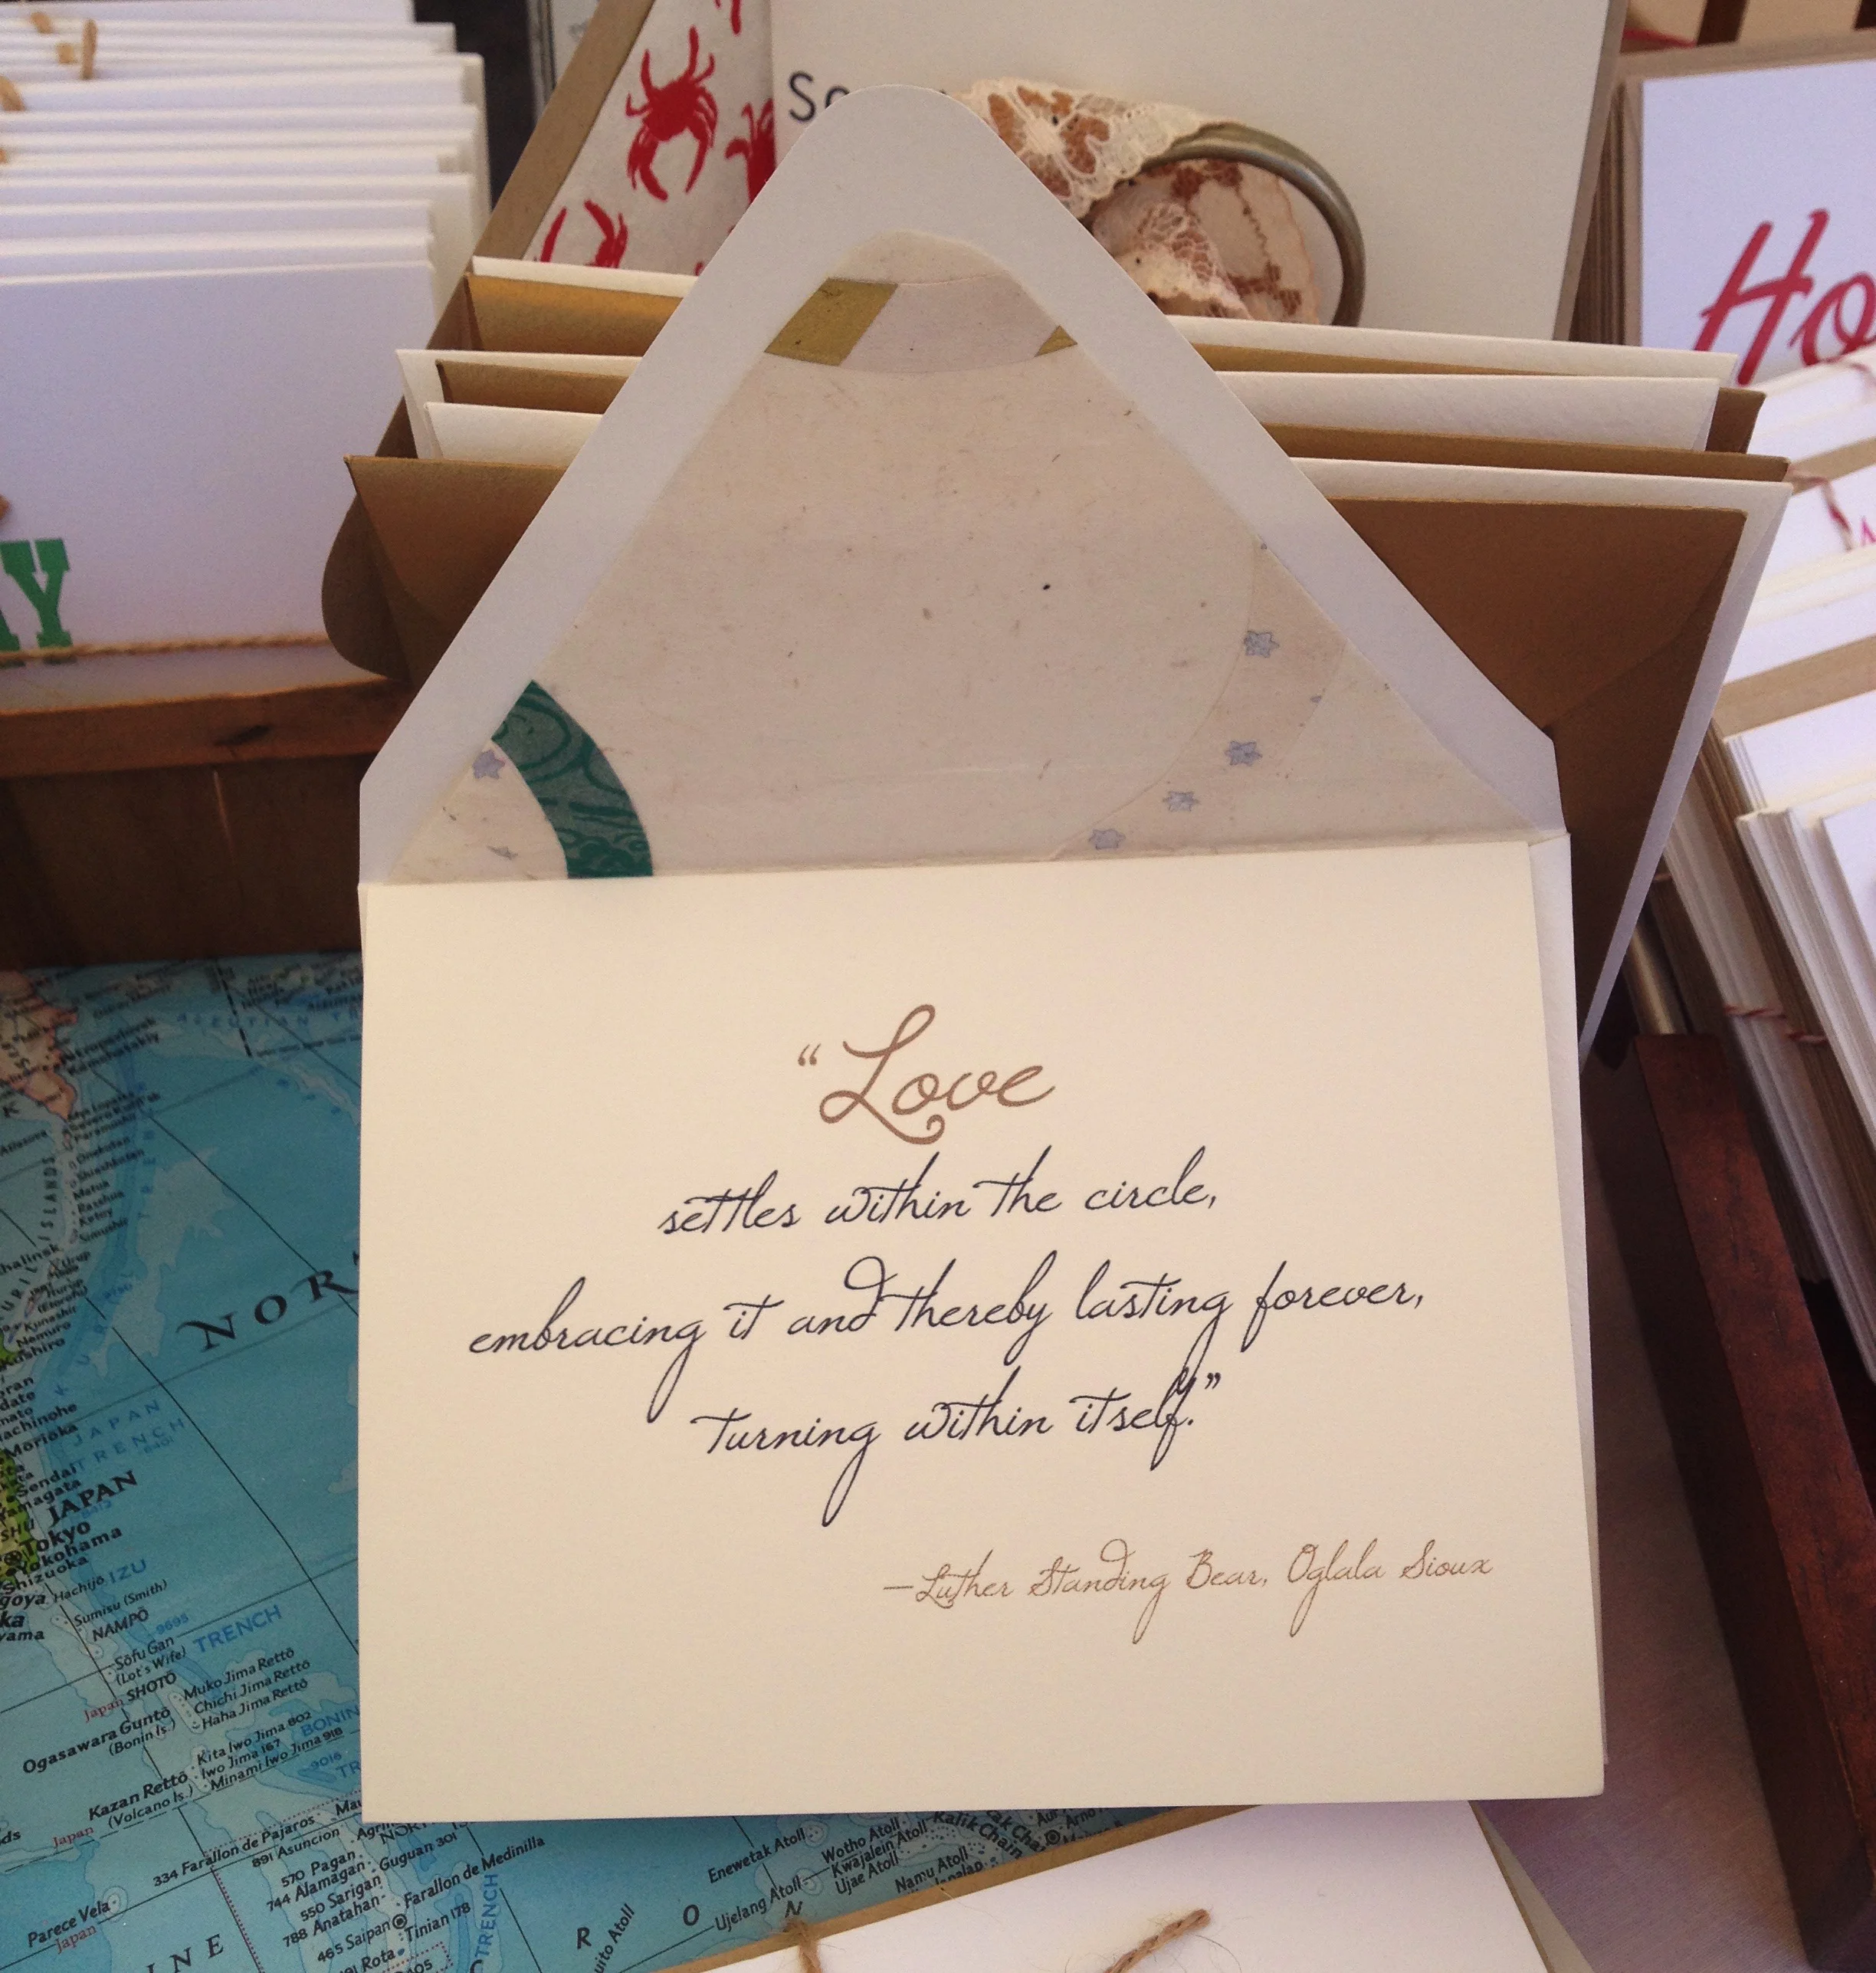 “Love
settles within the circle,
embracing it and thereby lasting forever,
turning within itself.”
—Luther Standing Bear, Oglala Sioux
Ho
NOR
JAPAN
TRENCH
Morioka
Sendai
JAPAN
Tokyo
Yokohama
Shizuoka
Hachijō
IZU
Sumisu (Smith)
NAMPŌ
9695
TRENCH
Sōfu Gan
(Lot's Wife)
SHOTŌ
Japan
Muko Jima Rettō
Chichi Jima Rettō
Haha Jima Rettō
Ogasawara Guntō
(Bonin Is.)
BONIN
Kita Iwo Jima 802
Iwo Jima 167
Minami Iwo Jima 918
Kazan Rettō
(Volcano Is.)
Japan
334 Farallon de Pajaros
891 Asuncion
570 Pagan
744 Alamagan
Guguan 301
550 Sarigan
788 Anatahan
Farallon de Medinilla
465 Saipan
Tinian 178
Rota
TRENCH
Parece Vela
Japan
Enewetak Atoll
Wotho Atoll
Kwajalein Atoll
Ujae Atoll
Namu Atoll
Ujelang Atoll
Kalik Chain